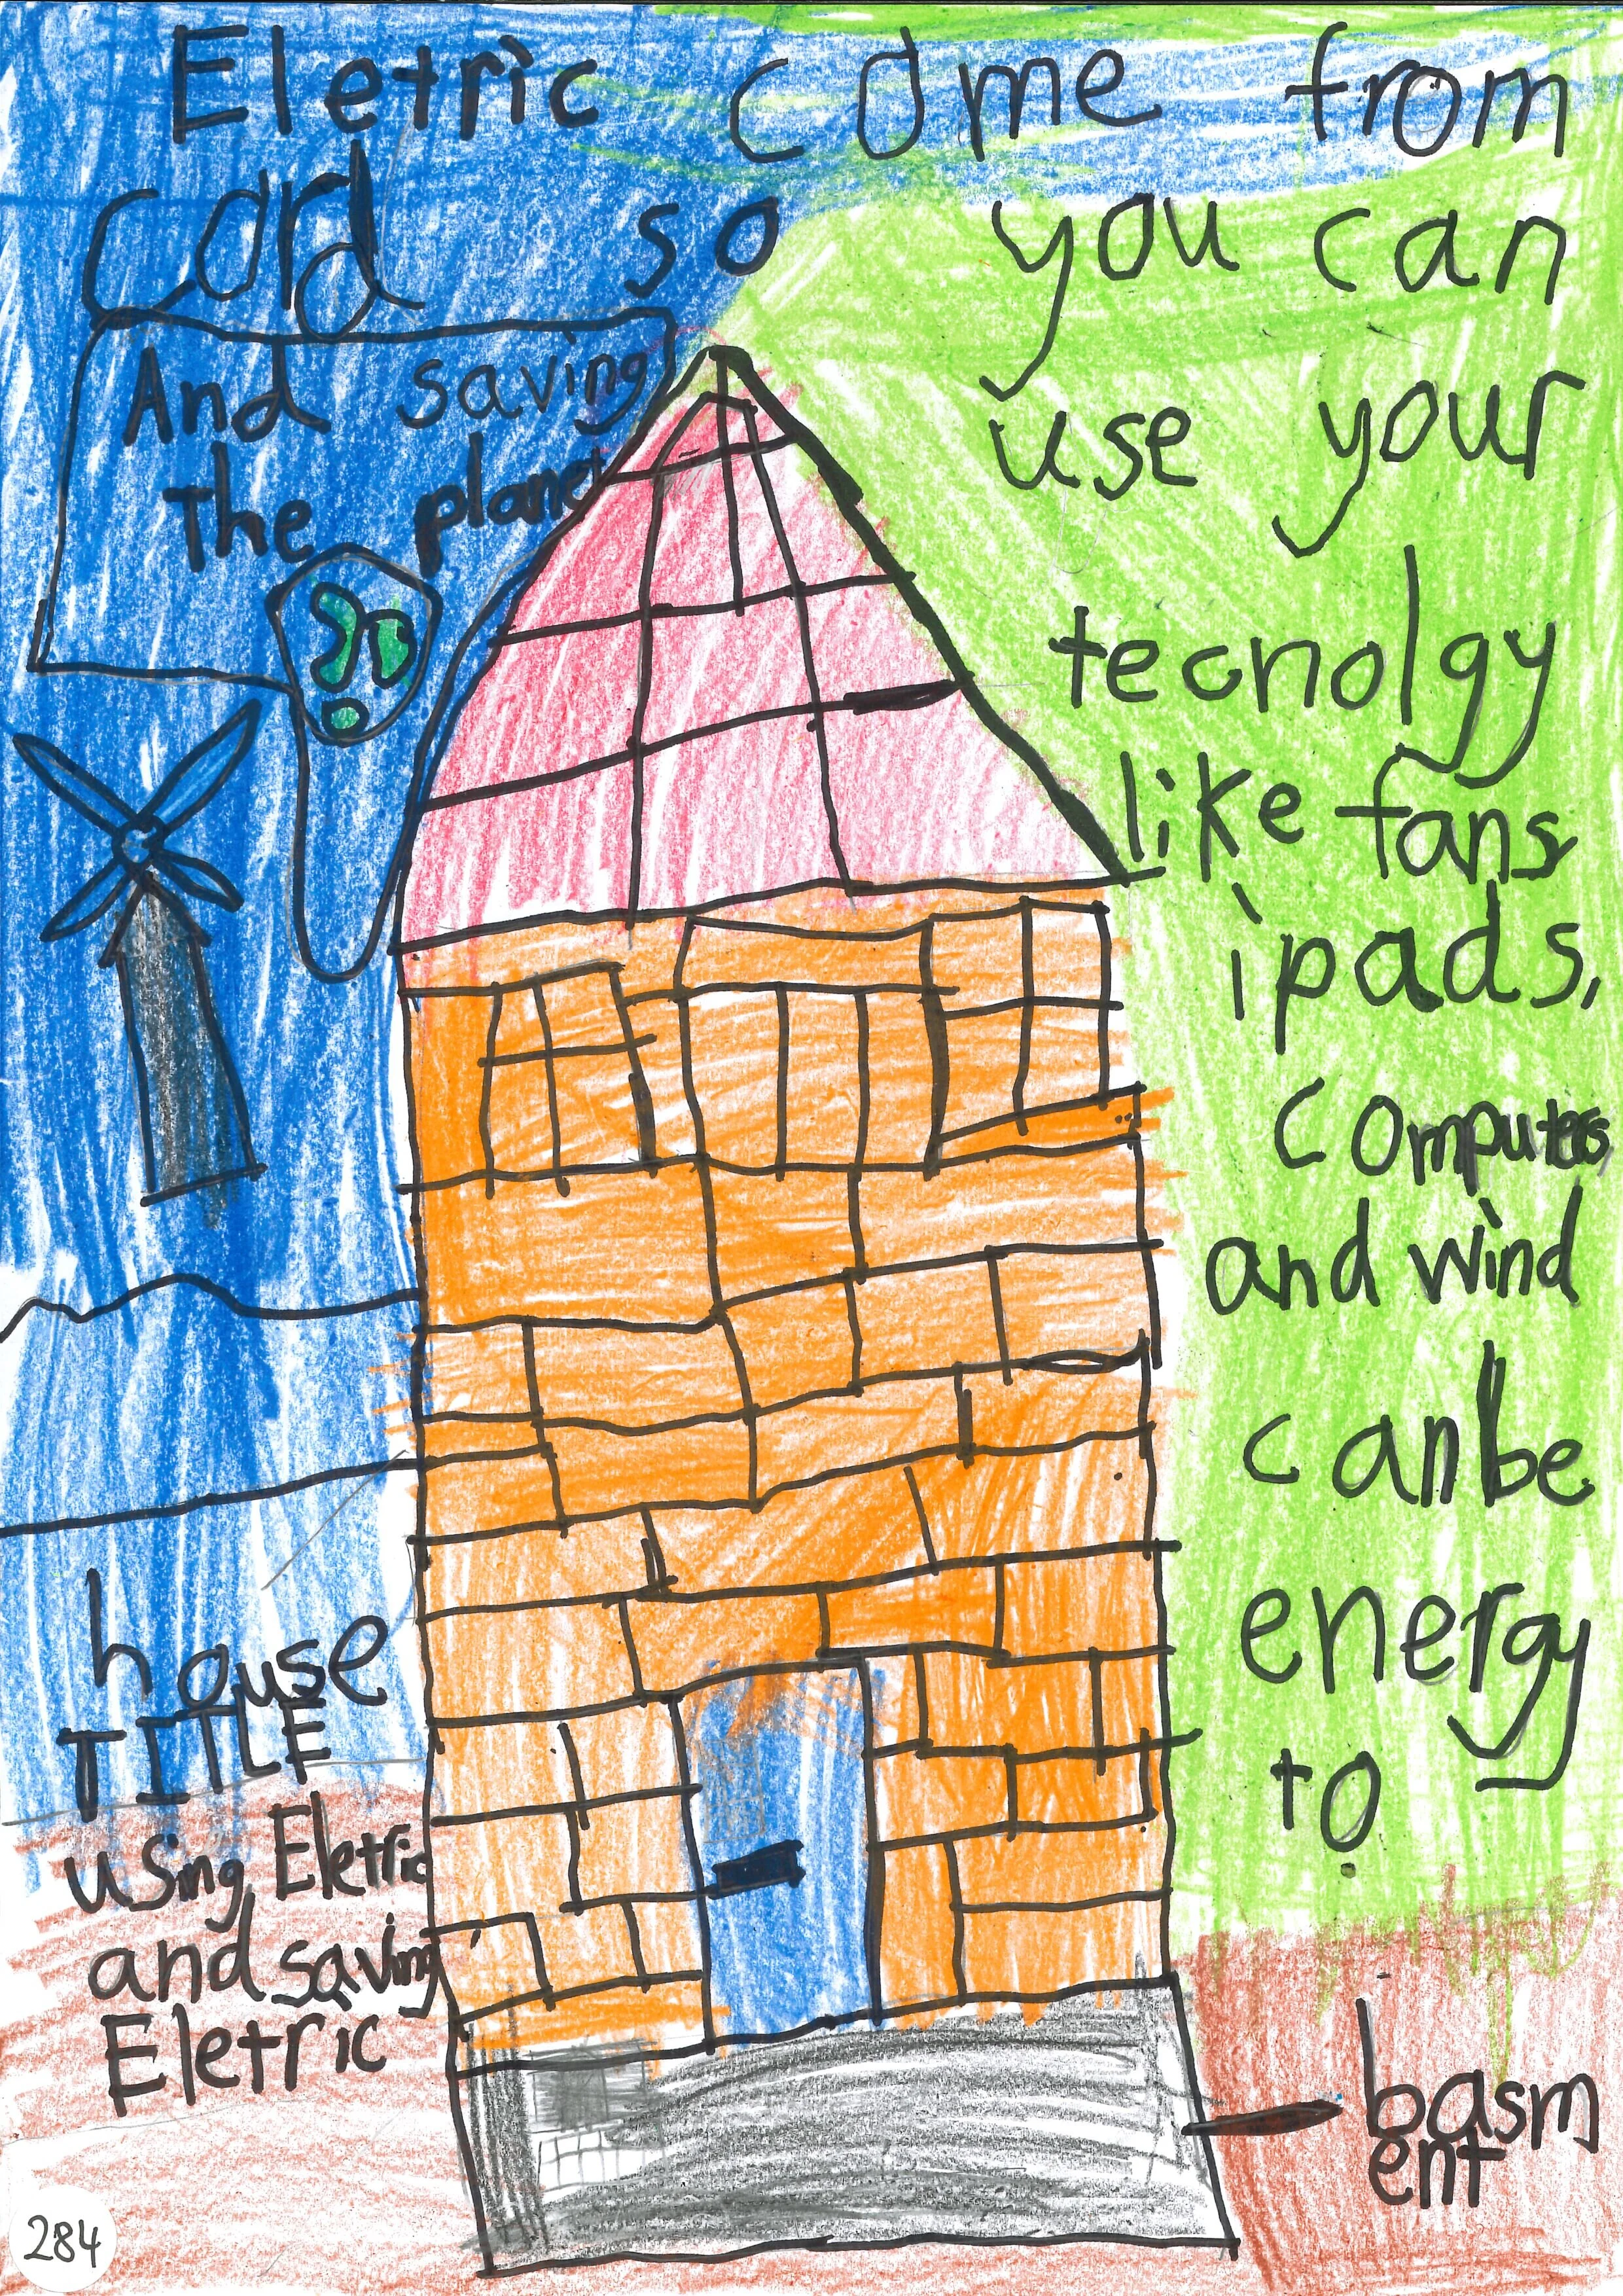 Eletric come from
card so you can
use your
tecnolgy
like fans
ipads,
computers
and wind
can be
energy
to.
And saving
the planet
house
TITLE
using Eletric
and saving
Eletric
basm
ent
284